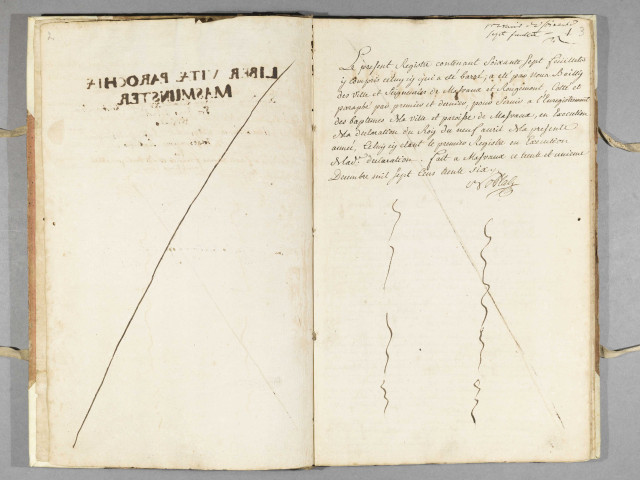 2
LIBER VITÆ PAROCHIÆ
MASMUNSTER
1 3
sept feuillets
Le present Registre contenant Soixante Sept feuilletts
y compris celuy cy qui a eté barré; a eté par Nous Baillÿ
des Ville et Seigneuries de Masvaux et Rougemont, Cotté et
paraphé par premier et dernier, pour Servir a l'Enregistrement
des baptemes de la ville et paroisse de Masvaux, en Execution
de la declaration du Roy du neuf avril de la presente
année, Celuy cy etant le premier Registre en Execution
de lad. declaration. fait a Masvaux ce trente et unieme
Decembre mil Sept Cens trente Six.